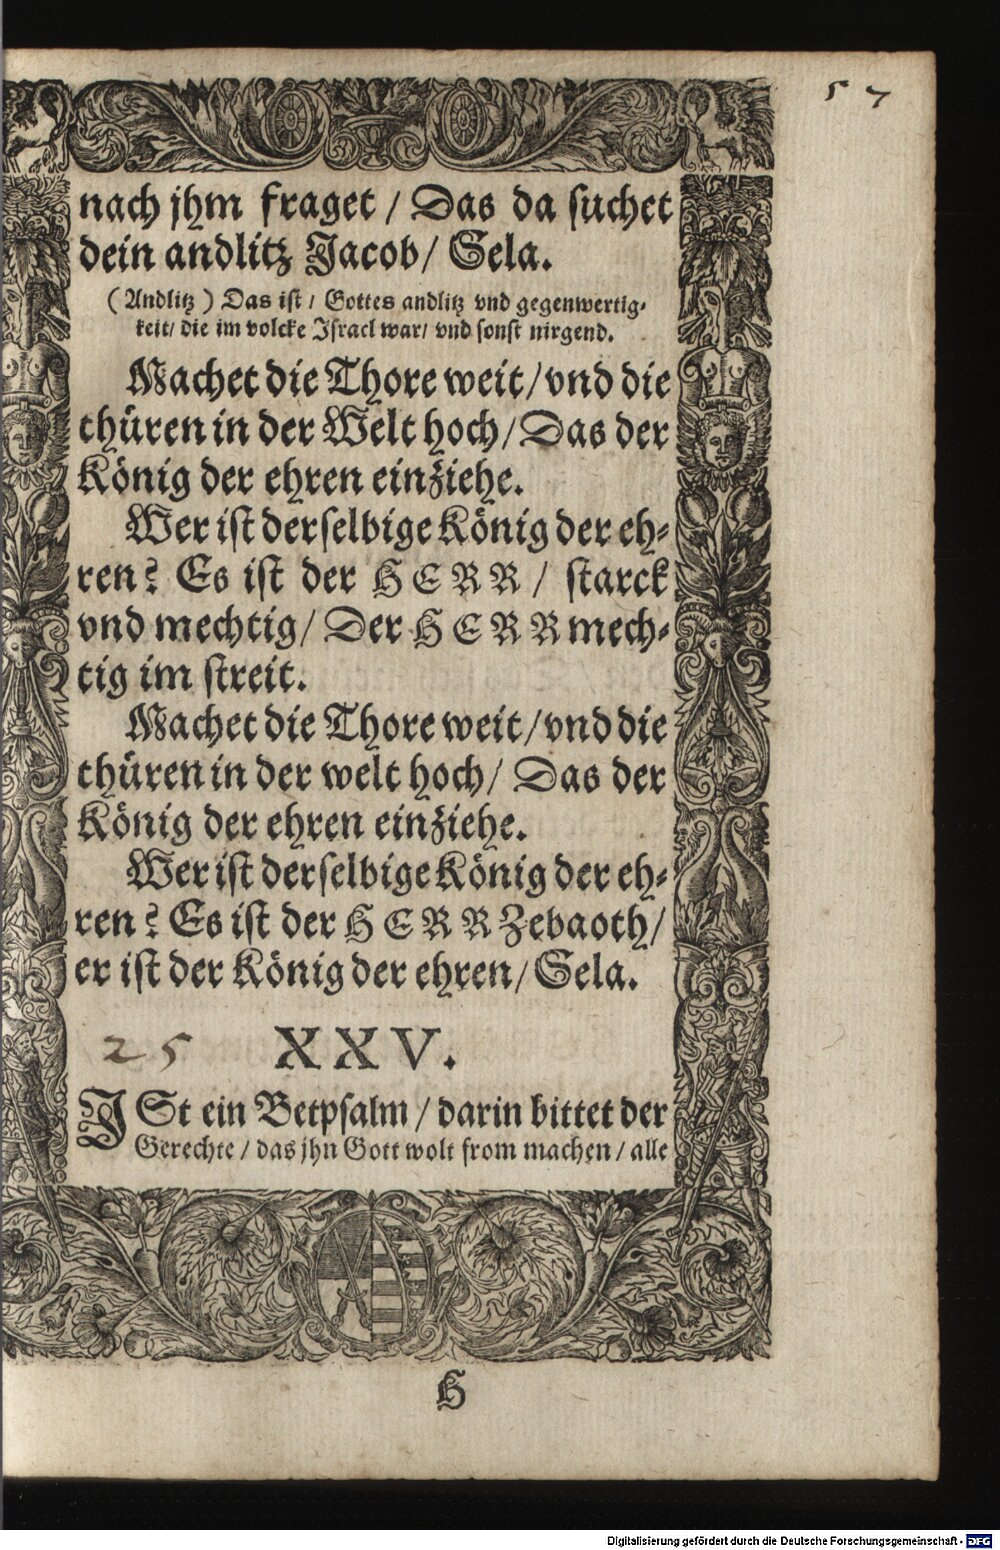 57
nach jhm fraget / Das da suchet
dein andlitz Jacob / Sela.
(Andlitz) Das ist / Gottes andlitz vnd gegenwertig-
keit / die im volcke Israel war / vnd sonst nirgend.
Machet die Thore weit / vnd die
thüren in der Welt hoch / Das der
König der ehren einziehe.
Wer ist derselbige König der eh-
ren? Es ist der HERR / starck
vnd mechtig / Der HERR mech-
tig im streit.
Machet die Thore weit / vnd die
thüren in der welt hoch / Das der
König der ehren einziehe.
Wer ist derselbige König der eh-
ren? Es ist der HERR Zebaoth /
er ist der König der ehren / Sela.
25 XXV.
JSt ein Betpsalm / darin bittet der
Gerechte / das jhn Gott wolt from machen / alle
H
Digitalisierung gefördert durch die Deutsche Forschungsgemeinschaft - DFG